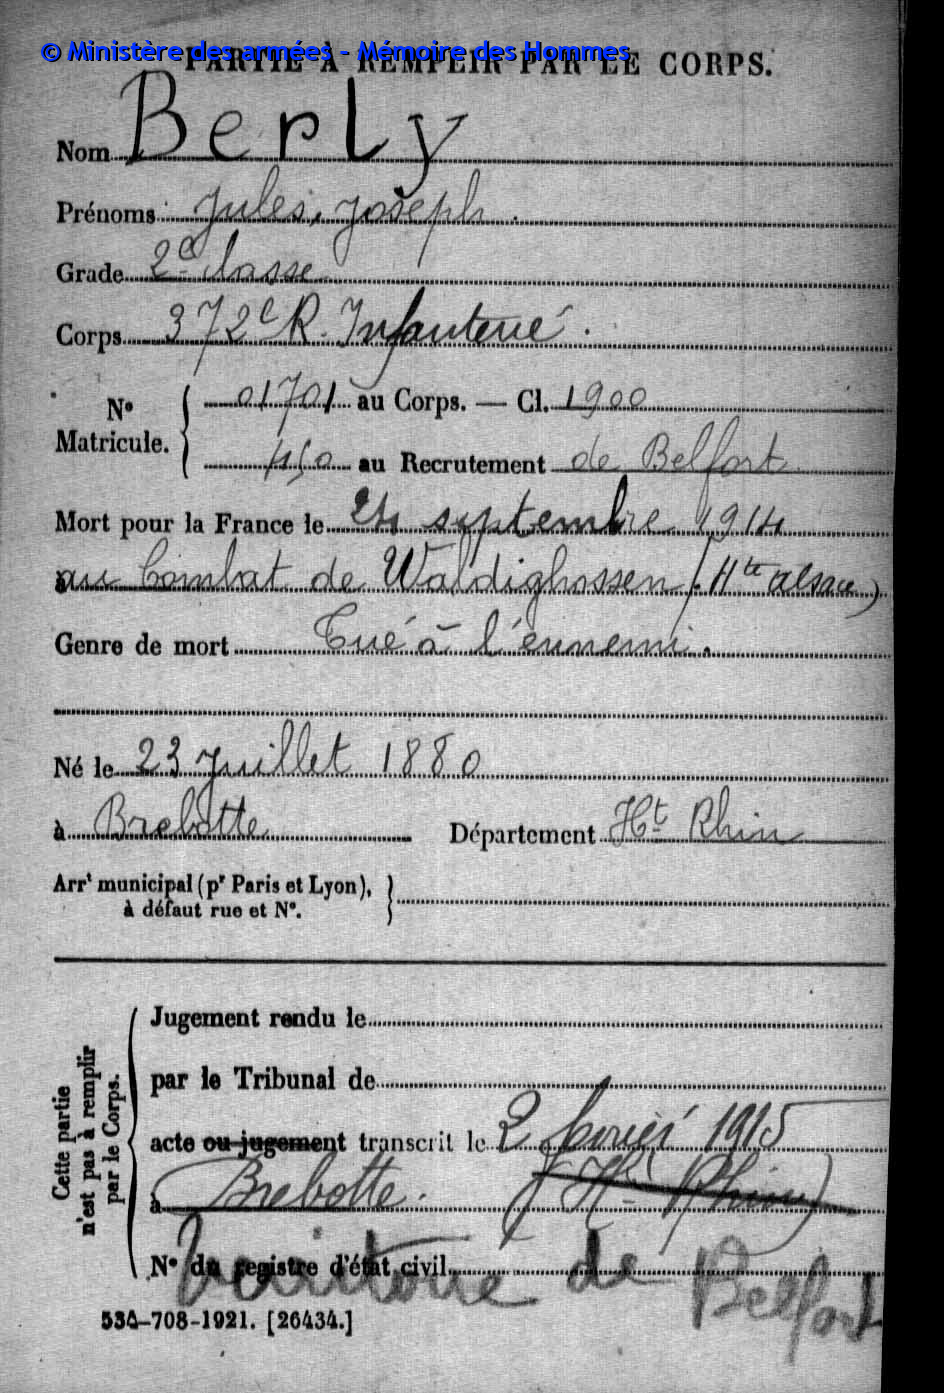 © Ministère des armées - Mémoire des Hommes
PARTIE À REMPLIR PAR LE CORPS.
Nom Berly
Prénoms Jules, Joseph.
Grade 2e classe
Corps 372e R. Infanterie.
No Matricule. { 01701 au Corps. — Cl. 1900
450 au Recrutement de Belfort
Mort pour la France le 24 septembre 1914
à au Combat de Waldighossen (Hte alsace)
Genre de mort Tué à l'ennemi.
Né le 23 juillet 1880
à Brebotte Département Ht Rhin
Arrt municipal (pr Paris et Lyon),
à défaut rue et No.
Cette partie n'est pas à remplir par le Corps.
Jugement rendu le
par le Tribunal de
acte ou jugement transcrit le 2 février 1915
à Brebotte. (Ht Rhin)
No du registre d'état civil
territoire de Belfort
534-708-1921. [26434.]